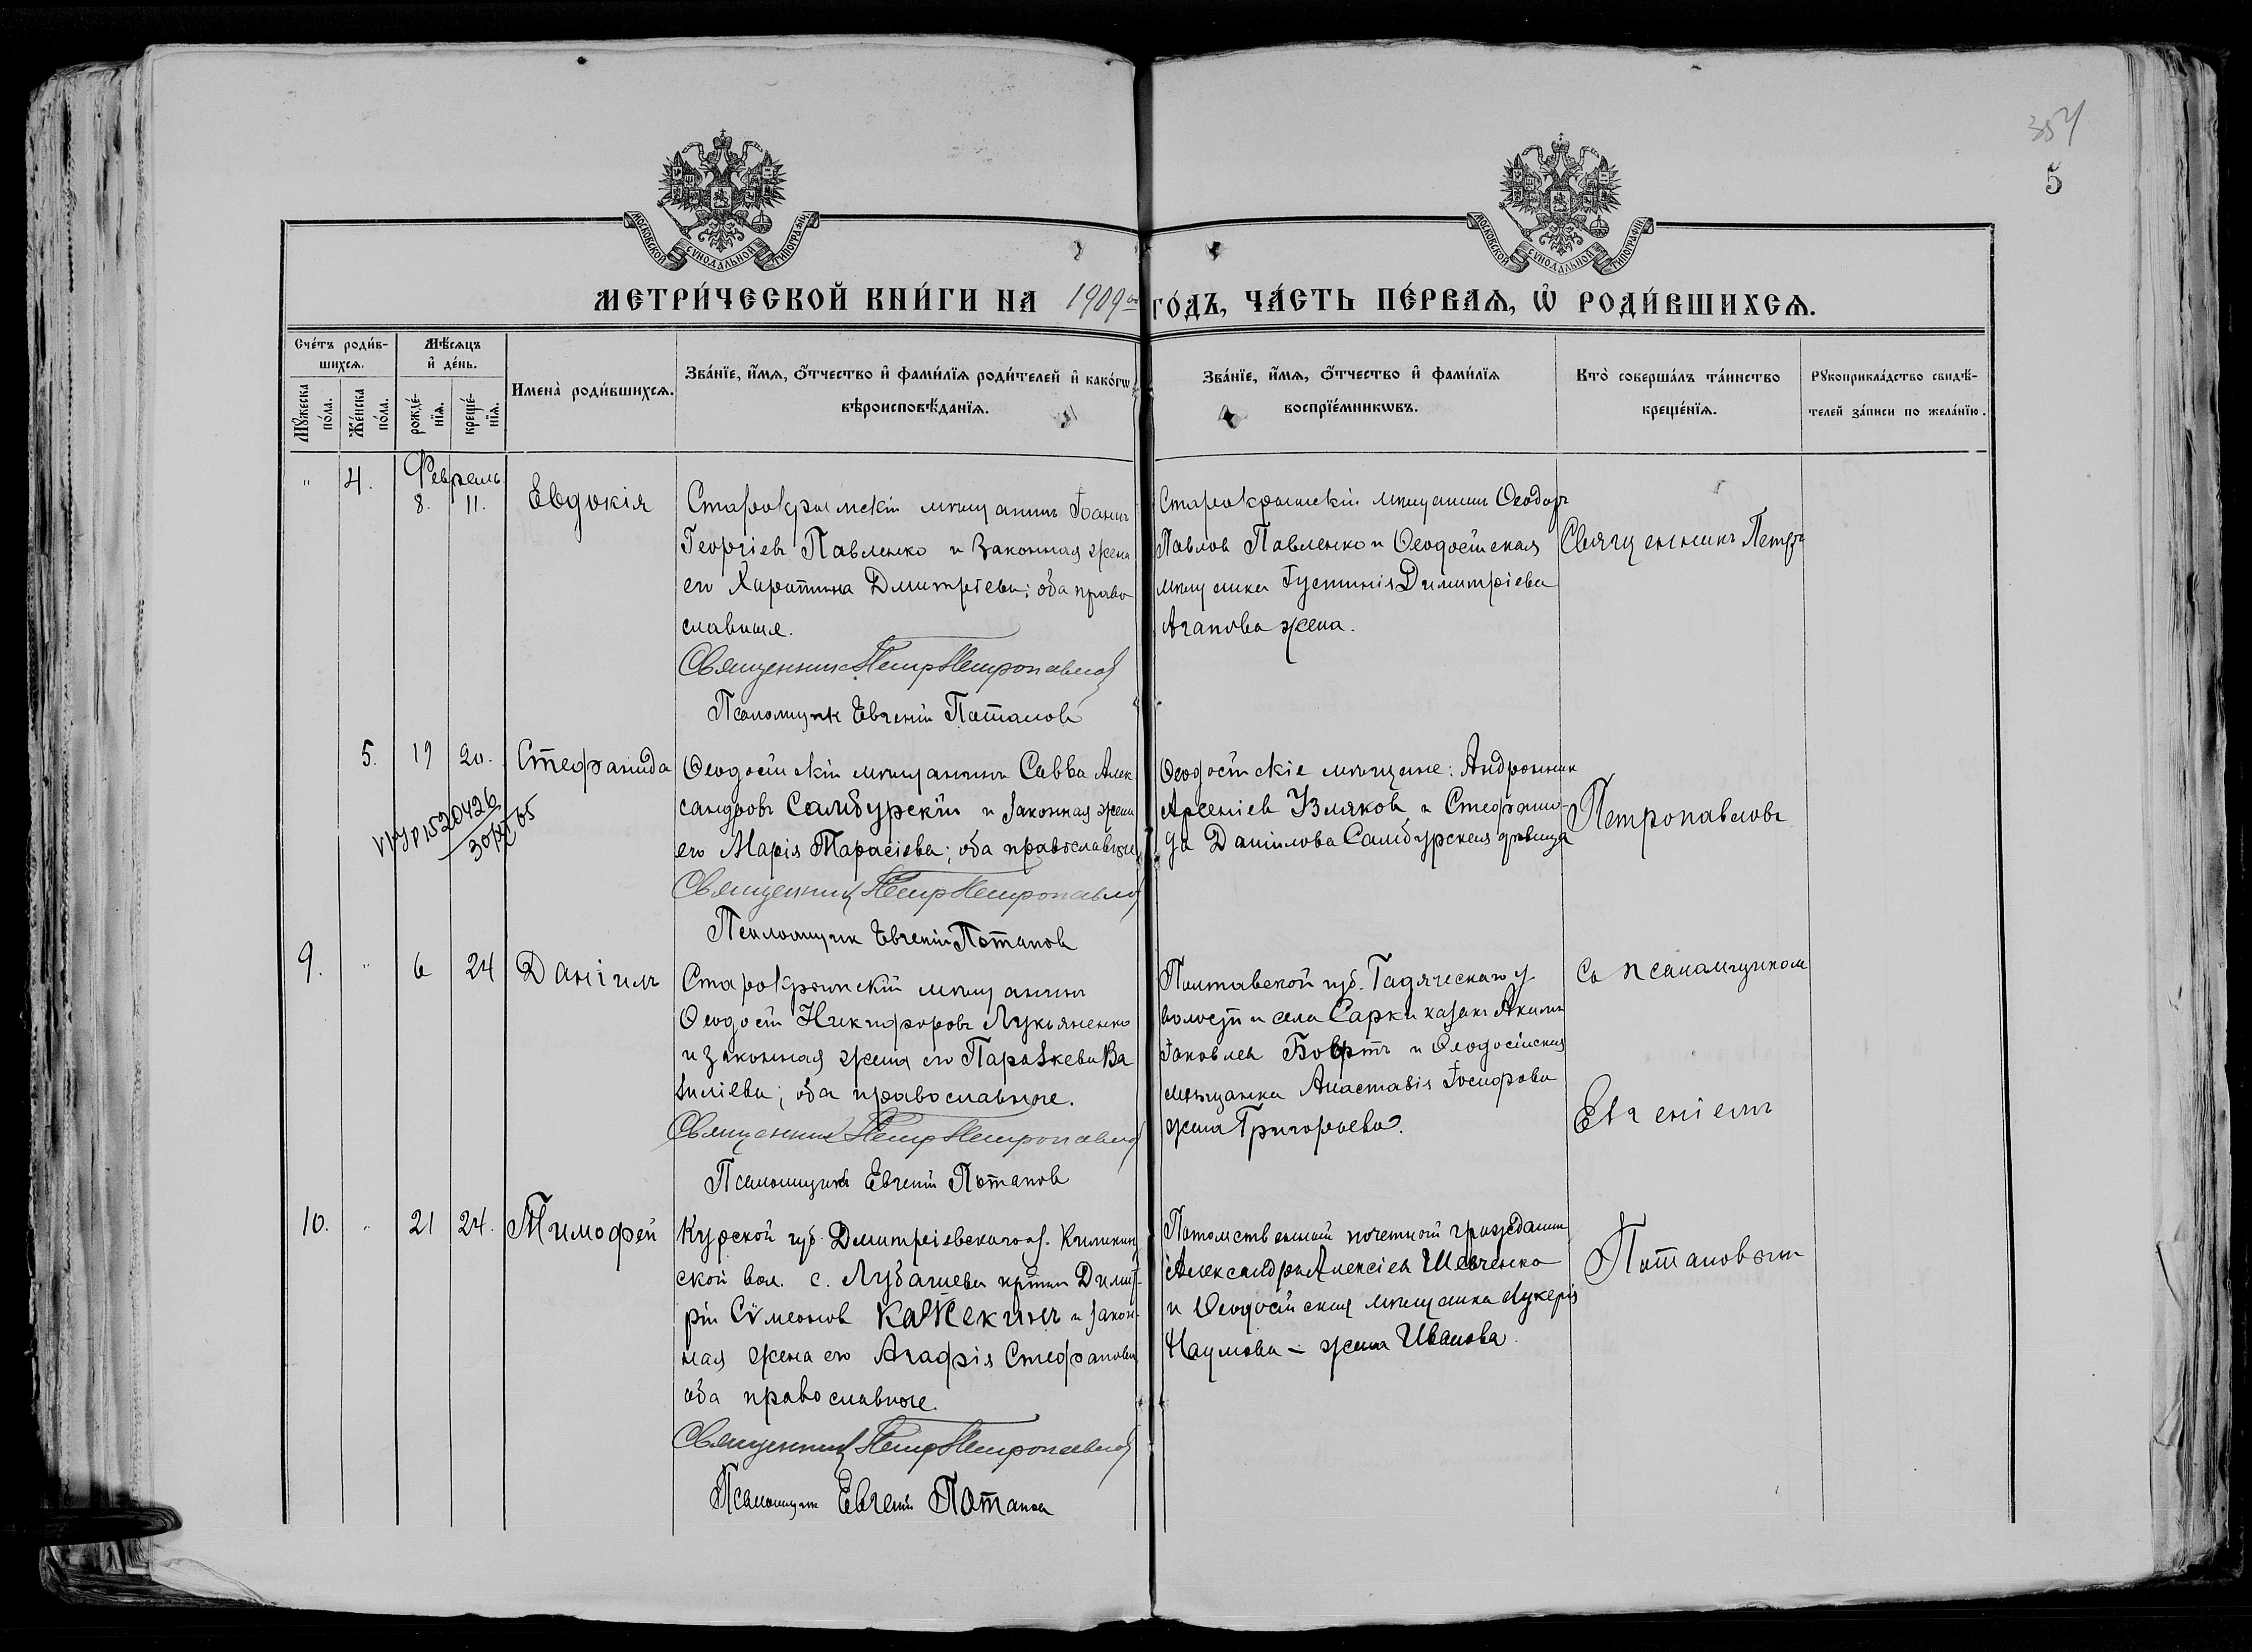 354
5
МОСКОВСКОЙ СѴНОДАЛЬНОЙ ТИПОГРАФІИ
МОСКОВСКОЙ СѴНОДАЛЬНОЙ ТИПОГРАФІИ
МЕТРИ́ЧЕСКОЙ КНИ́ГИ НА 1909 ГО́ДЪ, ЧА́СТЬ ПЕ́РВАѦ, Ѡ҆ РОДИ́ВШИХСѦ.
Сче́тъ роди́в-
шихсѧ.
Мꙋ́жеска по́ла.
Же́нска по́ла.
Мѣ́сѧцъ
и҆ де́нь.
рожде́-нїѧ.
креще́-нїѧ.
Имена̀ роди́вшихсѧ.
Зва́нїе, и҆́мѧ, ѻ҆́тчество и҆ фами́лїѧ роди́телей и҆ како́гѡ
вѣроисповѣ́данїѧ.
Зва́нїе, и҆́мѧ, ѻ҆́тчество и҆ фами́лїѧ
воспрїе́мникѡвъ.
Кто̀ соверша́лъ та́инство
креще́нїѧ.
Рꙋкоприкла́дство свидѣ́-
телей за́писи по жела́нїю.
" 4. Февраль
8. 11. Евдокія
Старокрымскій мѣщанинъ Іоаннъ
Георгіевъ Павленко и законная жена
его Харитина Дмитріева; оба право
славные.
Священникъ Петръ Петропавловъ
Псаломщикъ Евгеній Потаповъ
Старокрымскій мѣщанинъ Ѳеодоръ
Павловъ Павленко и Ѳеодосійская
мѣщанка Іустинія Димитріева
Агапова жена.
Священникъ Петръ
5. 19 20. Стефанида
Ѳеодосійскій мѣщанинъ Савва Алек
сандровъ Самбурскій и законная жена
его Марія Тарасіева; оба православные
Священникъ Петръ Петропавловъ
Псаломщикъ Евгеній Потаповъ
Ѳеодосійскіе мѣщане: Андроникъ
Арсеніевъ Узляковъ и Стефани-
да Даніилова Самбурская дѣвица
Петропавловъ
1520426
9. " 6 24 Даніилъ
Старокрымскій мѣщанинъ
Ѳеодосій Никифоровъ Лукьяненко
и законная жена его Параскева Ва
силіева; оба православные.
Священникъ Петръ Петропавловъ
Псаломщикъ Евгеній Потаповъ
Полтавской губ. Гадяческаго у.
волости и села Сарки казакъ Акимъ
Іаковлевъ и Ѳеодосійская
мѣщанка Анастасія Іосифова
жена Григорьева.
Съ псаломщикомъ
Евгеніемъ
10. " 21 24. Тимофей
Курской губ. Дмитріевскаго у.
ской вол. с. Лубашева кртнъ Димит
рій Сѵмеоновъ и закон-
ная жена его Агафія Стефанова
оба православные.
Священникъ Петръ Петропавловъ
Псаломщикъ Евгеній Потаповъ
Потомственный почетный гражданинъ
Александръ Алексіевъ Шевченко
и Ѳеодосійская мѣщанка Лукерія
Наумова – жена Иванова.
Потаповымъ